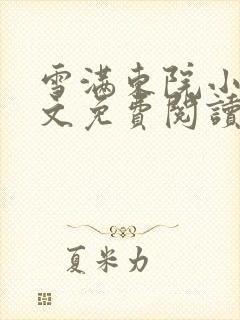 雪滿東院小
文免費閱讀
夏米力